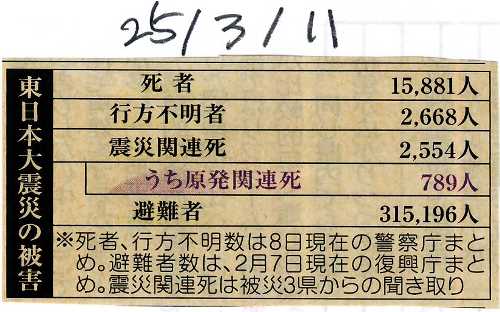 25/3/11
東日本大震災の被害
死者 15,881人
行方不明者 2,668人
震災関連死 2,554人
うち原発関連死 789人
避難者 315,196人
※死者、行方不明数は8日現在の警察庁まと
め。避難者数は、2月7日現在の復興庁まと
め。震災関連死は被災3県からの聞き取り